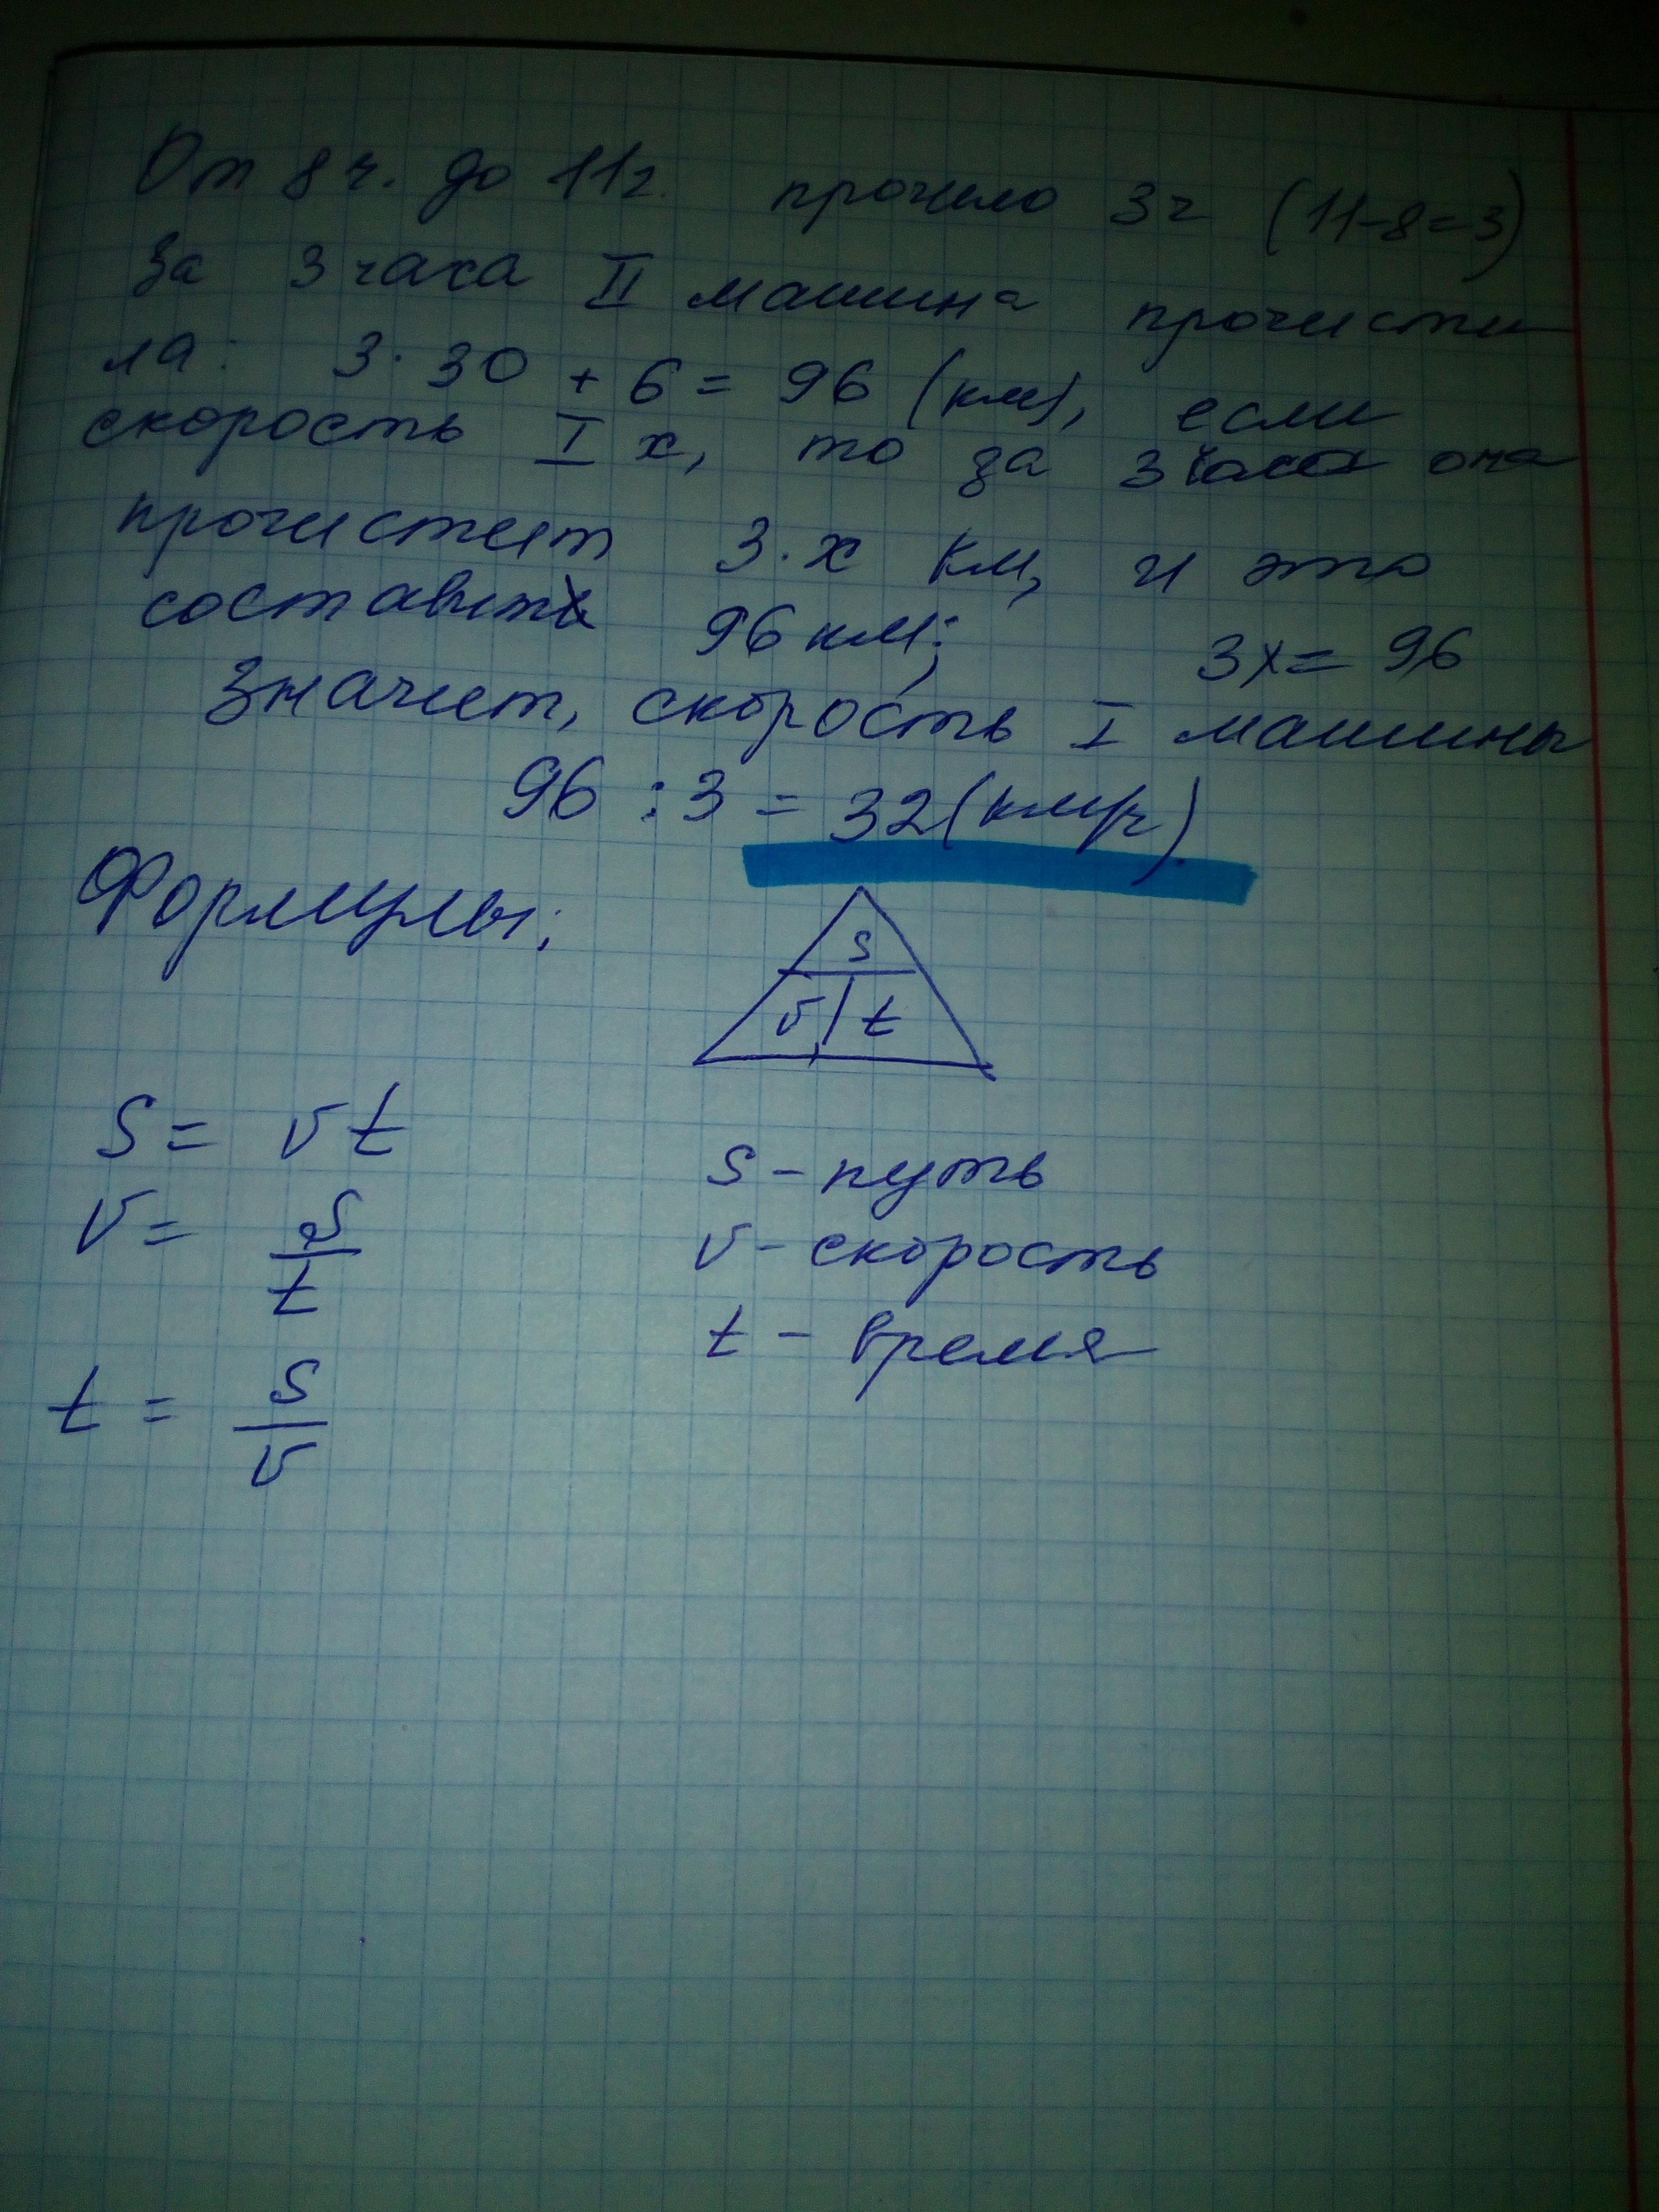 От 8 ч. до 11 ч. прошло 3 ч (11-8=3)
За 3 часа II машина прочисти
ла: 3·30 + 6 = 96 (км), если
скорость I x, то за 3 часа она
прочистит 3·x км, и это
составит 96 км; 3x = 96
Значит, скорость I машины
96 : 3 = 32 (км/ч)
Формулы:
S
v t
S = vt
v = S/t
t = S/v
S - путь
v - скорость
t - время